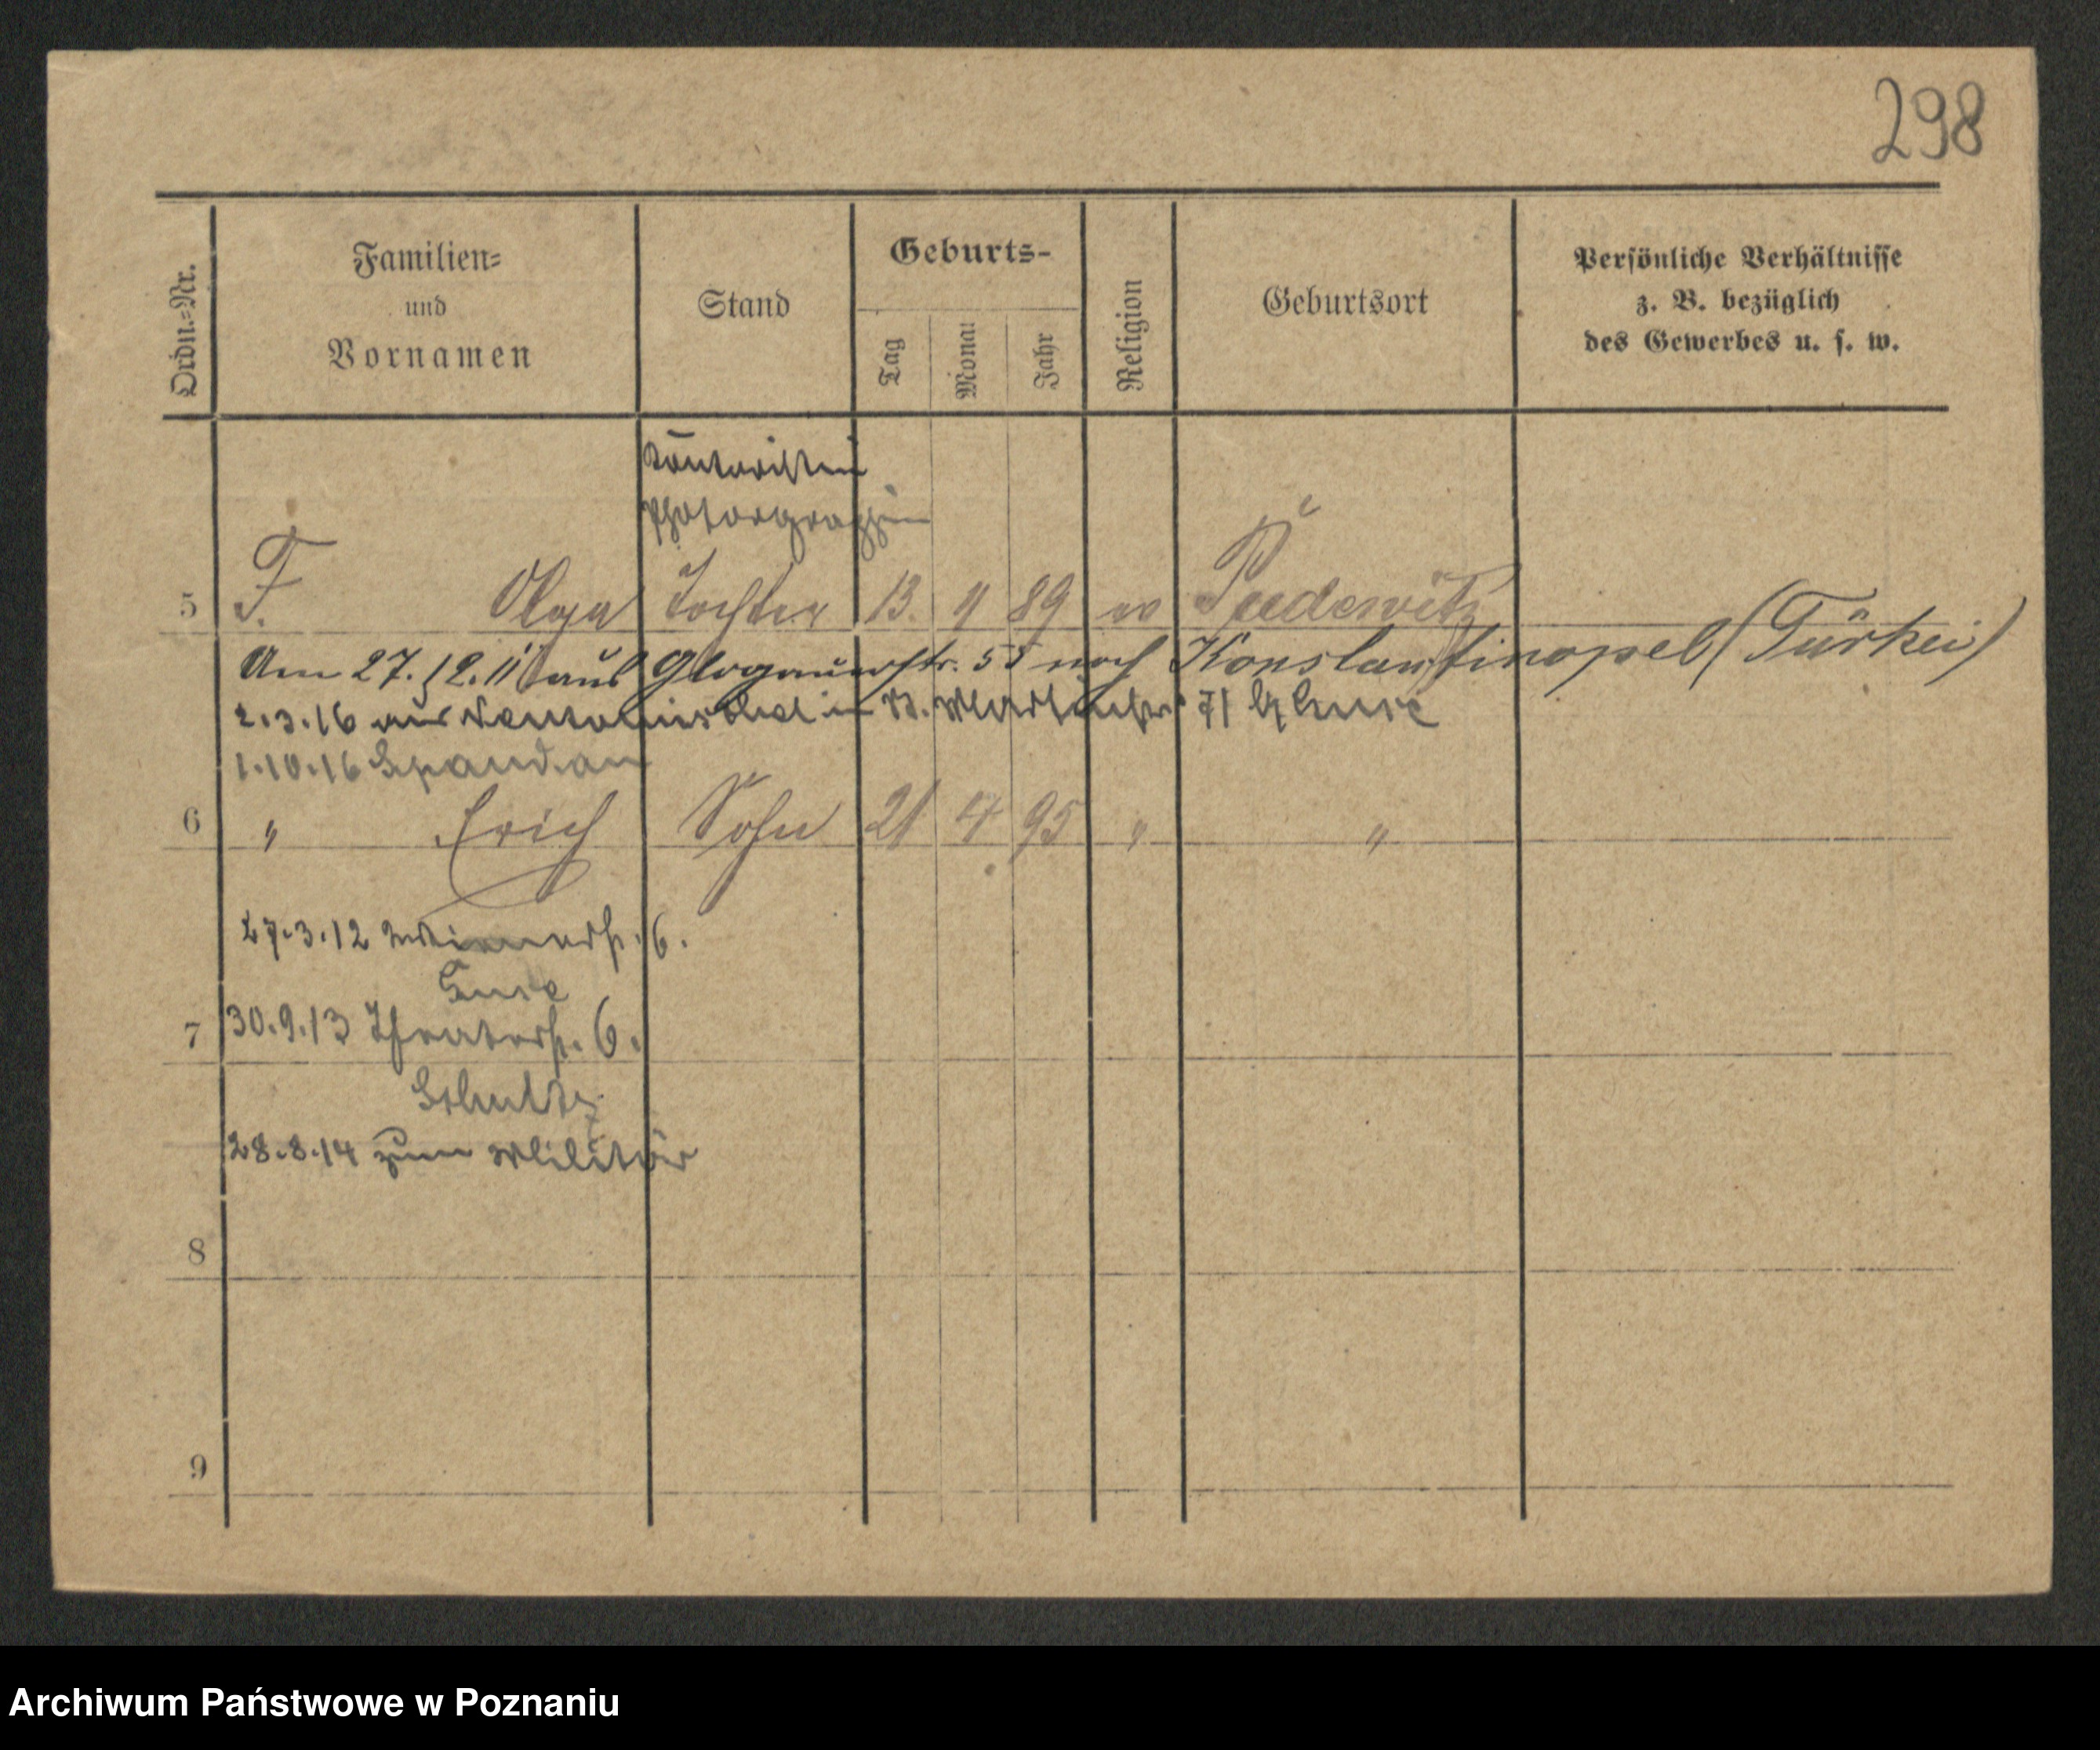 298
Ordn.=Nr.
Familien=
und
Vornamen
Stand
Geburts-
Tag
Monat
Jahr
Religion
Geburtsort
Persönliche Verhältnisse
z. B. bezüglich
des Gewerbes u. s. w.
Kontoristin
Photographin
5 F. Olga Tochter 13. 11 89 ev Pudewitz
Am 27. 12. 11 aus Glogauerstr. 55 nach Konstantinopel (Türkei)
2.3.16 aus in St. Martinstr. 71
1.10.16 Spandau
6 " Erich Sohn 21 4 95 " "
27.3.12 6.
7 30.9.13 Theaterstr. 6.
Schultz
28.8.14 zum Militär
8
9
Archiwum Państwowe w Poznaniu